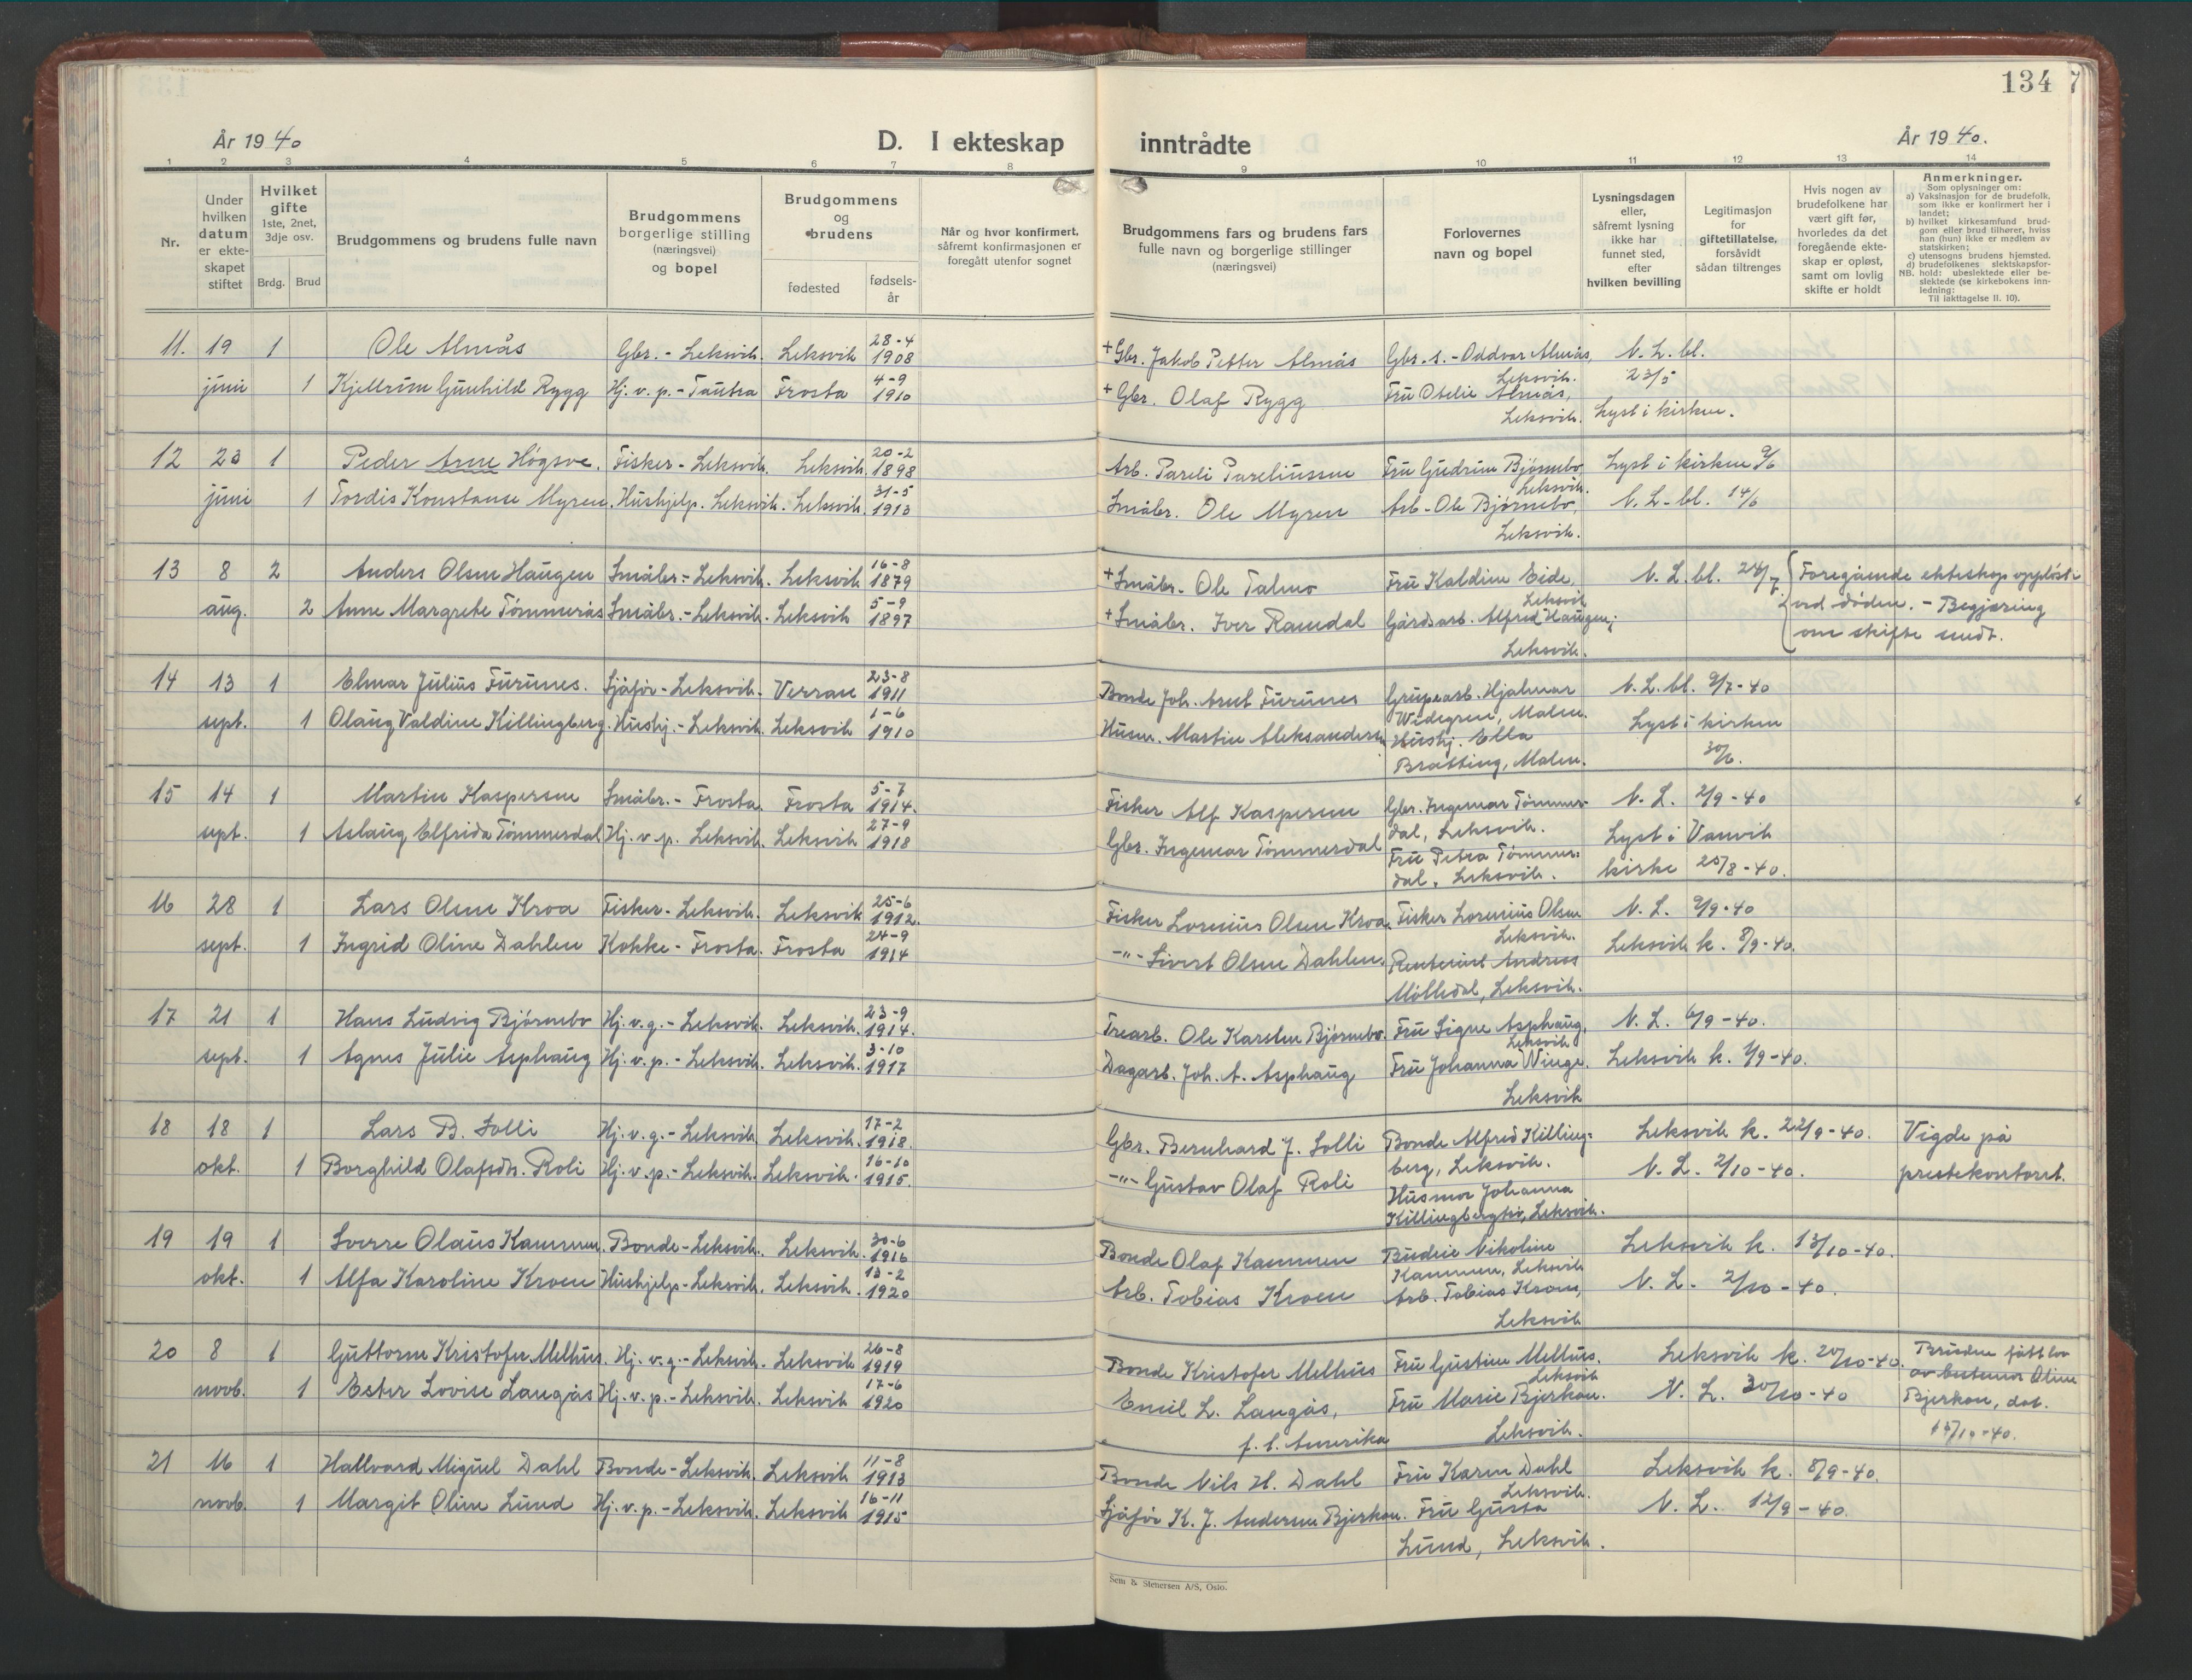 134
År 1940
D. I ekteskap
inntrådte
År 1940.
1 2 3 4 5 6 7 8 9 10 11 12 13 14
Nr.
Under hvilken datum er ekteskapet stiftet
Hvilket gifte
1ste, 2net, 3dje osv.
Brdg. Brud
Brudgommens og brudens fulle navn
Brudgommens borgerlige stilling (næringsvei) og bopel
Brudgommens og brudens
fødested
fødselsår
Når og hvor konfirmert, såfremt konfirmasjonen er foregått utenfor sognet
Brudgommens fars og brudens fars fulle navn og borgerlige stillinger (næringsvei)
Forlovernes navn og bopel
Lysningsdagen eller, såfremt lysning ikke har funnet sted, efter hvilken bevilling
Legitimasjon for giftetillatelse, forsåvidt sådan tiltrenges
Hvis nogen av brudefolkene har vært gift før, hvorledes da det foregående ekteskap er opløst, samt om lovlig skifte er holdt
Anmerkninger.
Som oplysninger om:
a) Vaksinasjon for de brudefolk, som ikke er konfirmert her i landet;
b) hvilket kirkesamfund brudgom eller brud tilhører, hviss han (hun) ikke er medlem av statskirken;
c) utensogns brudens hjemsted.
d) brudefolkenes slektskapsforhold: ubeslektede eller beslektede (se kirkebokens innledning:
NB.
Til iakttagelse II. 10).
11. 19 1 Ole Almås Gbr. - Leksvik. Leksvik 28-4 1908 + Gbr. Jakob Petter Almås Gbr. s. - Oddvar Almås, Leksvik. N. L. bl. 23/5
juni 1 Kjellrun Gunhild Rygg Hj. v. p. - Tautra Frosta 4-9 1910 + Gbr. Olaf Rygg Fru Otelie Almås, Leksvik. Lyst i kirken.
12 23 1 Peder Arne Högsve. Fisker - Leksvik. Leksvik. 20-2 1898 Arb. Pareli Pareliussen Fru Gudrun Bjørnebo Leksvik. Lyst i kirken 9/6
juni 1 Tordis Konstanse Myren. Hushjelp. Leksvik. Leksvik. 31-5 1913 Småbr. Ole Myren Arb - Ole Bjørnebo, Leksvik. N. L - bl. 14/6
13 8 2 Anders Olsen Haugen Småbr. - Leksvik. Leksvik 16-8 1879 + Småbr. Ole Talmo Fru Kaldine Eide, Leksvik N. L. bl. 24/7 Foregående ekteskap oppløst
aug. 2 Anne Margrete Tömmerås Småbr. - Leksvik. Leksvik 5-9 1897 + Småbr. Iver Ramdal Gårdsarb. Alfred Haugen, Leksvik. ved døden. - Begjæring
om skifte sendt.
14 13 1 Elmar Julius Furunes. Sjåfør - Leksvik. Verran 23-8 1911 Bonde Joh. Arnt Furunes Grupearb. Hjalmar Widegren, Malm. N. L. bl. 9/7-40
sept. 1 Olaug Valdine Killingberg. Hushj. - Leksvik. Leksvik 1-6 1910 Husm. Martin Aleksandersen Hushj. Ella Bratting, Malm. Lyst i kirken 30/6.
15 14 1 Martin Kaspersen Småbr. - Frosta. Frosta 5-7 1914. Fisker Alf Kaspersen Gbr. Ingemar Tömmerdal, Leksvik. N. L. 2/9-40
sept. 1 Aslaug Elfrida Tömmerdal Hj. v. p. Leksvik. Leksvik 27-9 1918 Gbr. Ingemar Tömmerdal Fru Petra Tömmerdal, Leksvik. Lyst i Vanvik kirke 25/8-40.
16 28 1 Lars Olsen Kroa Fisker - Leksvik. Leksvik 25-6 1912. Fisker Lorenius Olsen Kroa. Fisker Lorenius Olsen Leksvik. N. L. 9/9-40
sept. 1 Ingrid Oline Dahlen Kokke - Frosta. Frosta 24-9 1914 -"- Sivert Olsen Dahlen. Rentenist Andreas Mölledal, Leksvik. Leksvik k. 8/9-40.
17 21 1 Hans Ludvig Bjørnebo Hj. v. g. - Leksvik. Leksvik. 23-9 1914. Trearb. Ole Karsten Bjørnebo. Fru Signe Asphaug, Leksvik N. L. 6/9-40.
sept. 1 Agnes Julie Asphaug Hj. v. p. - Leksvik. Leksvik. 3-10 1917 Dagarb. Joh. A. Asphaug Fru Johanna Winge. Leksvik Leksvik k. 1/9-40.
18 18 1 Lars B. Solli Hj. v. g. - Leksvik. Leksvik. 17-2 1918. Gbr. Bernhard J. Solli Bonde Alfred Killingberg, Leksvik. Leksvik k. 22/9-40. Vigde på
okt. 1 Borghild Olafsdtr. Roli Hj. v. p. - Leksvik. Leksvik. 16-10 1915. -"- Gustav Olaf Roli Husmor Johanna Killingbergtrø, Leksvik. N. L. 2/10-40. prestekontoret.
19 19 1 Sverre Olaus Kammen. Bonde - Leksvik. Leksvik. 30-6 1916 Bonde Olaf Kammen Budeie Nikoline Kammen, Leksvik Leksvik k. 13/10-40.
okt. 1 Alfa Karoline Kroen Hushjelp - Leksvik. Leksvik. 13-2 1920 Arb. Tobias Kroen Arb. Tobias Kroen, Leksvik N. L. 2/10-40.
20 8 1 Guttorm Kristofer Melhus. Hj. v. g. - Leksvik. Leksvik 26-8 1919 Bonde Kristofer Melhus Fru Gustine Melhus. Leksvik Leksvik k. 20/10-40. Bruden fått lov
novb. 1 Ester Lovise Langås Hj. v. p. - Leksvik. Leksvik 17-6 1920 Emil L. Langås, f. t. Amerika Fru Marie Bjerkan. Leksvik. N. L. 30/10-40 av bestemor Oline
Bjerkan, dat.
21 16 1 Hallvard Miguel Dahl Bonde - Leksvik. Leksvik 11-8 1913 Bonde Nils H. Dahl Fru Karen Dahl Leksvik. Leksvik k. 8/9-40.
novb. 1 Margit Oline Lund Hj. v. p. - Leksvik. Leksvik 16-11 1915 Sjåfør K. J. Andersen Bjerkan. Fru Gusta Lund, Leksvik. N. L. 12/9-40.
Sem & Stenersen A/S, Oslo.